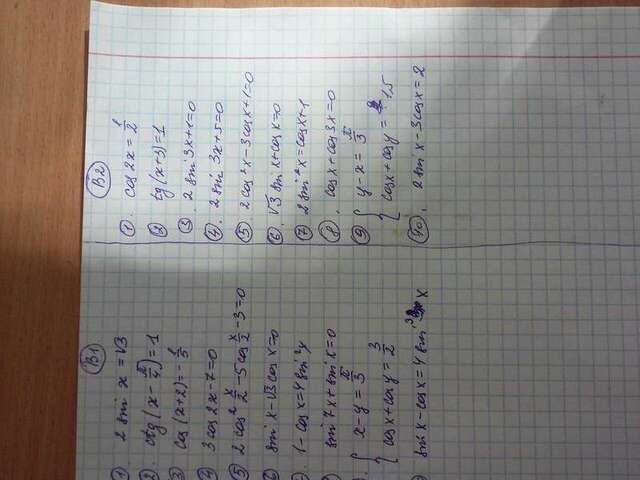 B1
① 2 sin x = √3
②. ctg (x - π/4) = 1
③ cos (x+2) = -1/5
④ 3 cos 2x - 7 = 0
⑤ 2 cos² x/2 - 5 cos x/2 - 3 = 0
⑥ sin x - √3 cos x = 0
1 - cos x = 4 sin² y
sin 7x + sin x = 0
{ x - y = π/3
cos x + cos y = 3/2
sin x - cos x = 4 sin³ x
B2
①. cos 2x = 1/2
② tg (x+3) = 1
③ 2 sin 3x + 1 = 0
④. 2 sin 3x + 5 = 0
⑤ 2 cos² x - 3 cos x + 1 = 0
⑥. √3 sin x + cos x = 0
⑦ 2 sin² x = cos x + 1
⑧. cos x + cos 3x = 0
⑨ { y - x = π/3
cos x + cos y = 1,5
⑩. 2 sin x - 3 cos x = 2